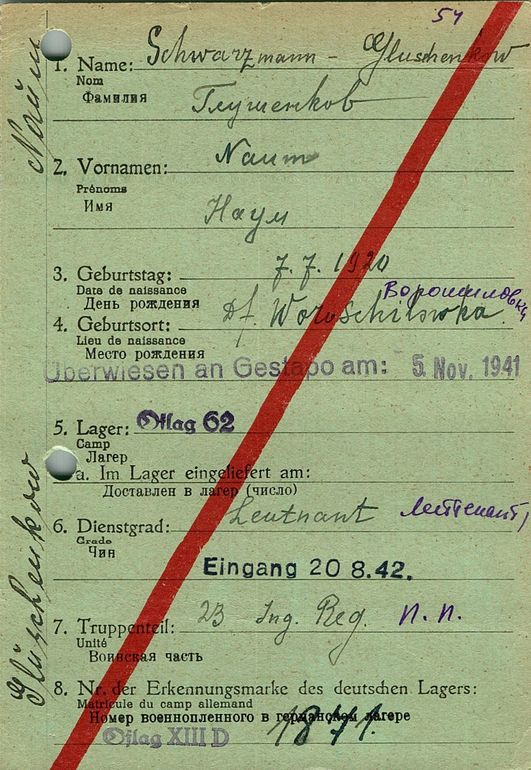 54
1. Name: Schwarzmann - Gluschenkow
Nom
Фамилия Глушенков
2. Vornamen: Naum
Prénoms
Имя Наум
3. Geburtstag: 7. 7. 1920
Date de naissance
День рождения Ворошиловка
4. Geburtsort: Df. Woroschilowka.
Lieu de naissance
Место рождения
Überwiesen an Gestapo am: 5. Nov. 1941
5. Lager: Oflag 62
Camp
Лагерь
a. Im Lager eingeliefert am:
Доставлен в лагерь (число)
6. Dienstgrad: Leutnant
Grade
Чин
Eingang 20 8.42.
7. Truppenteil: 23 Ing. Reg. п. п.
Unité
Воинская часть
8. Nr. der Erkennungsmarke des deutschen Lagers:
Matricule du camp allemand
Номер военнопленного в германском лагере
Oflag XIII D 1871.
Naum
Gluschenkow